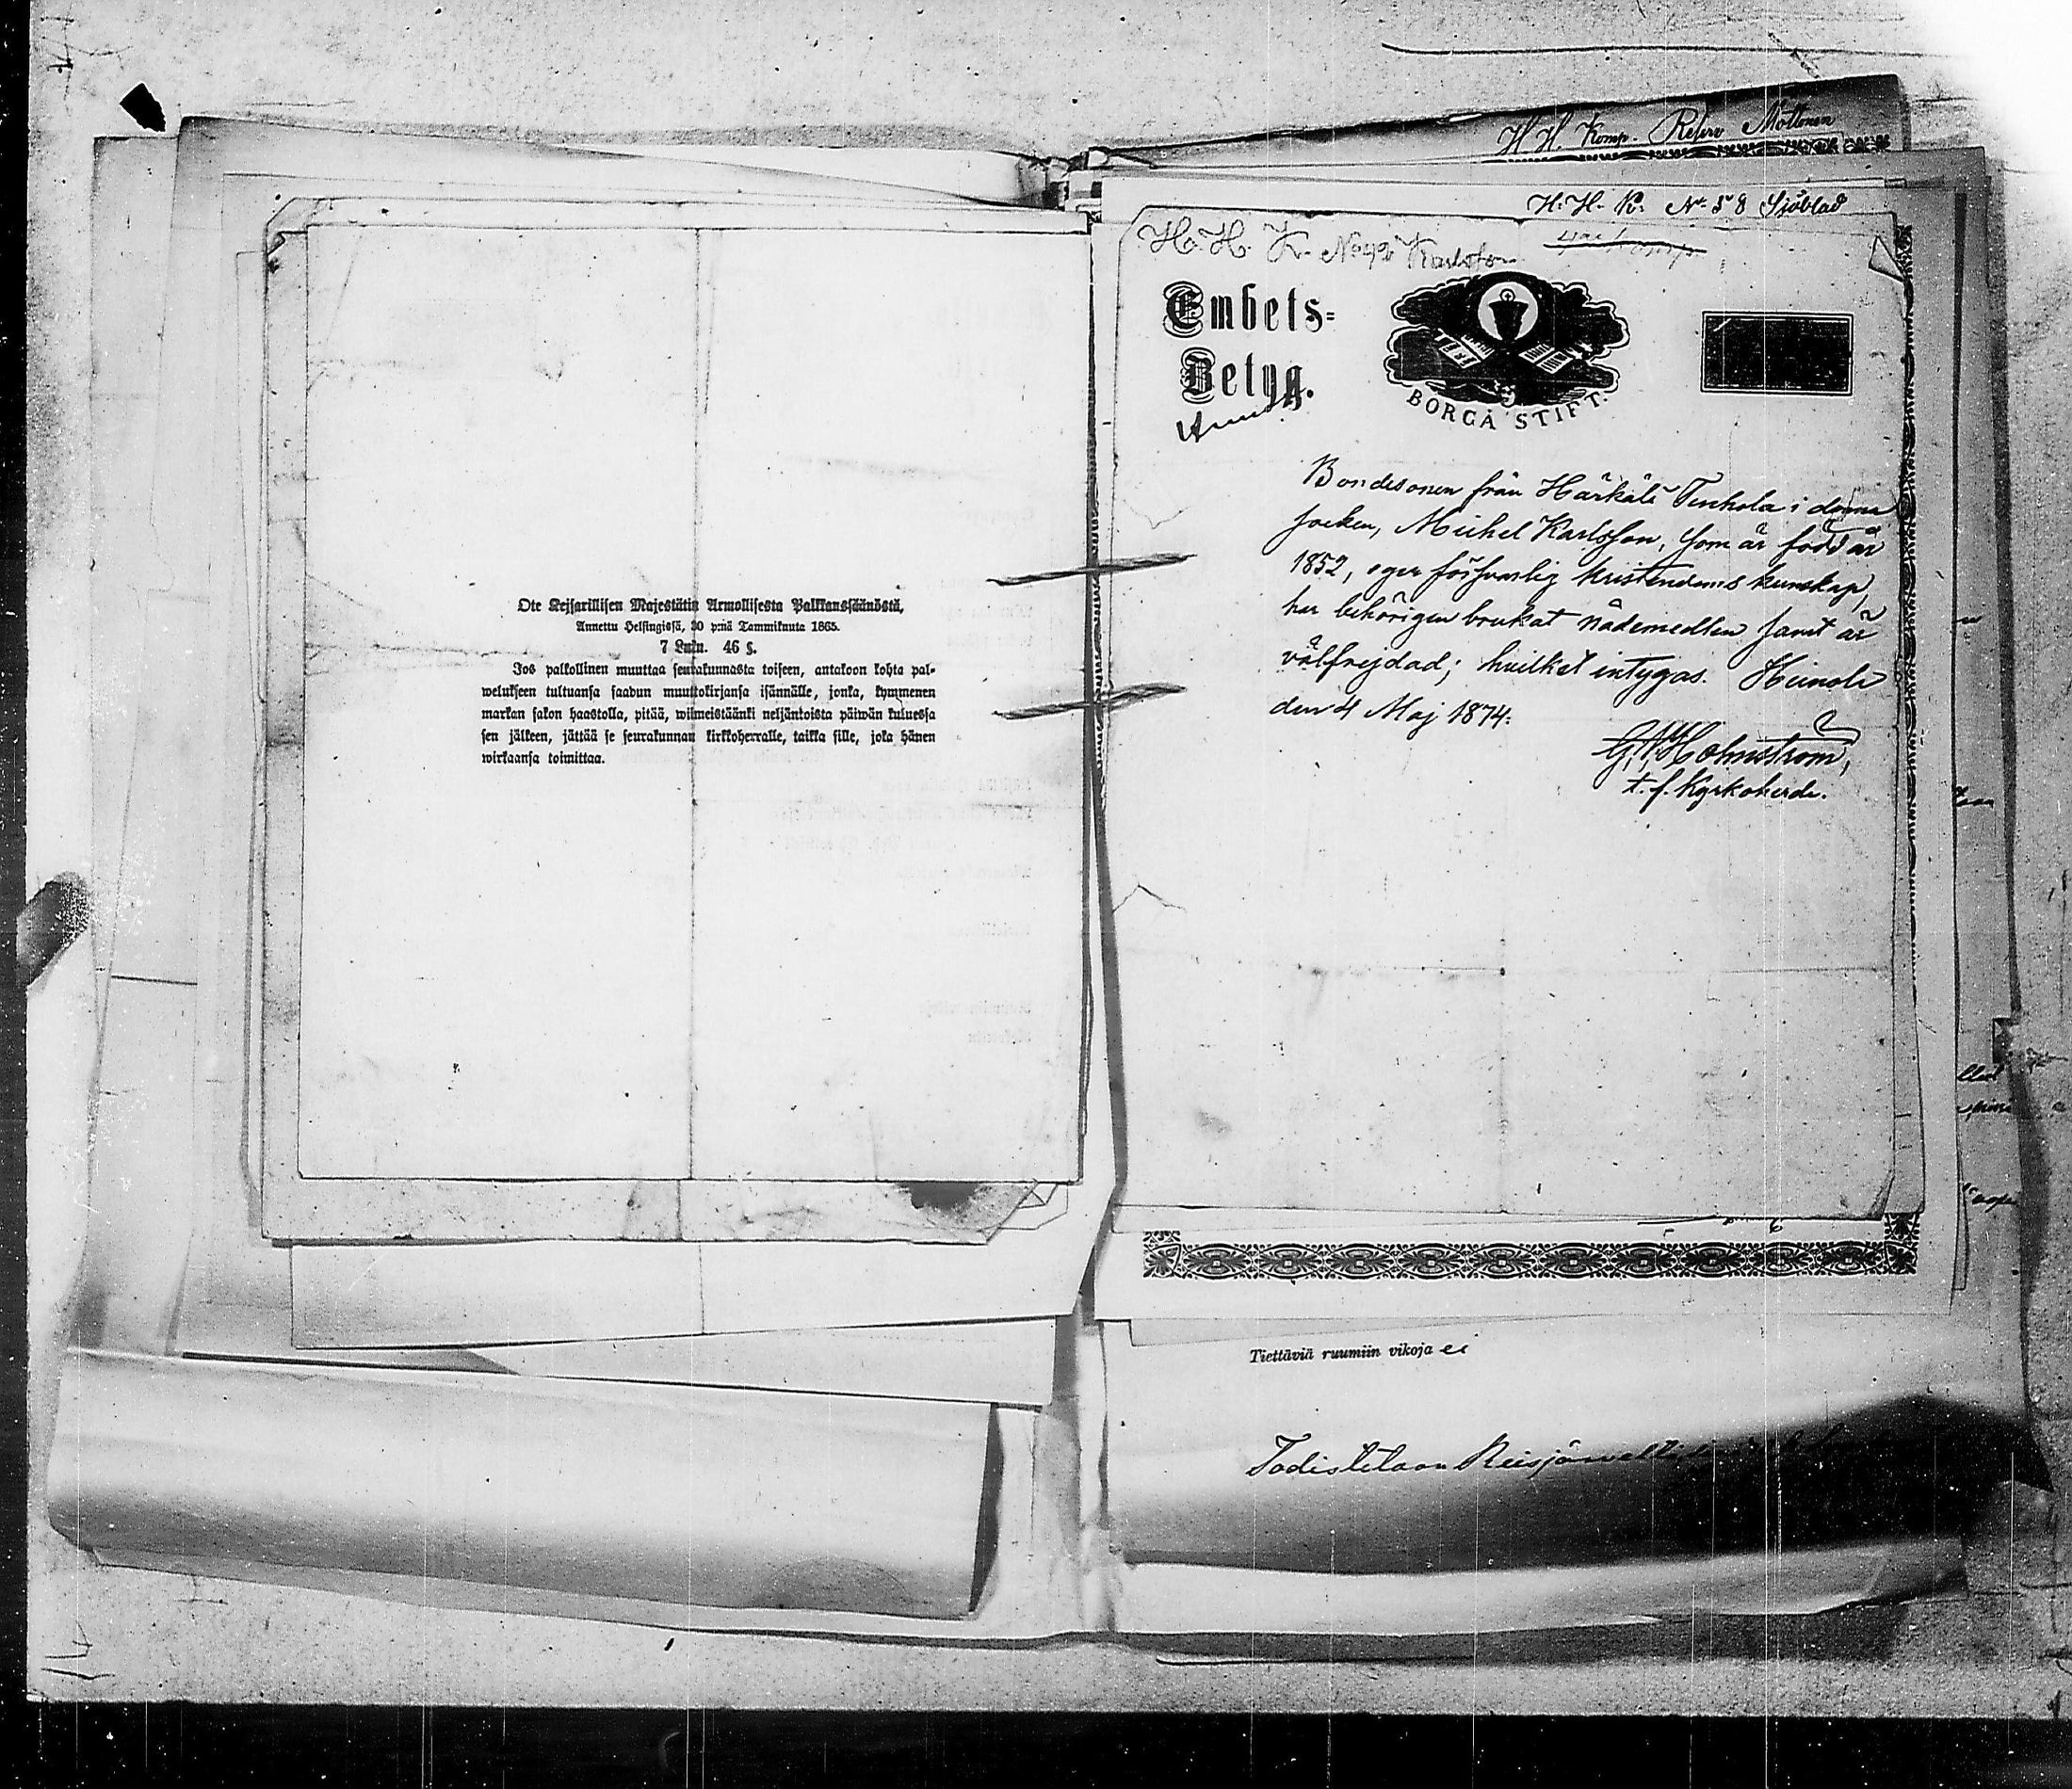 Ote Keisarillisen Majestätin Armollisesta Palkkaussäänöstä,
Annettu Helsingissä, 30 p:nä Tammikuuta 1865.
7 Luku. 46 §.
Jos palkollinen muuttaa seurakunnasta toiseen, antakoon kohta pal-
welukseen tultuansa saadun muuttokirjansa isännälle, jonka, kymmenen
markan sakon haastolla, pitää, wiimeistäänki neljäntoista päiwän kuluessa
sen jälkeen, jättää se seurakunnan kirkkoherralle, taikka sille, joka hänen
wirkaansa toimittaa.
H H. Komp. Reserv Möttönen
H. H. K: No 58 Sjöblad
H. H. K. No 92 Karlsson
Embets-
Betyg.
BORGÅ STIFT.
Bondesonen från Härkälä Tenhola i denna
socken, Michel Karlsson, som är född år
1852, eger försvarlig kristendoms kunskap,
har behörigen brukat nådemedlen samt är
välfrejdad; hvilket intygas. Heinola
den 4 Maj 1874.
Holmström,
t. f. Kyrkoherde.
Tiettäviä ruumiin vikoja ei
Todistetaan Reisjärvellä